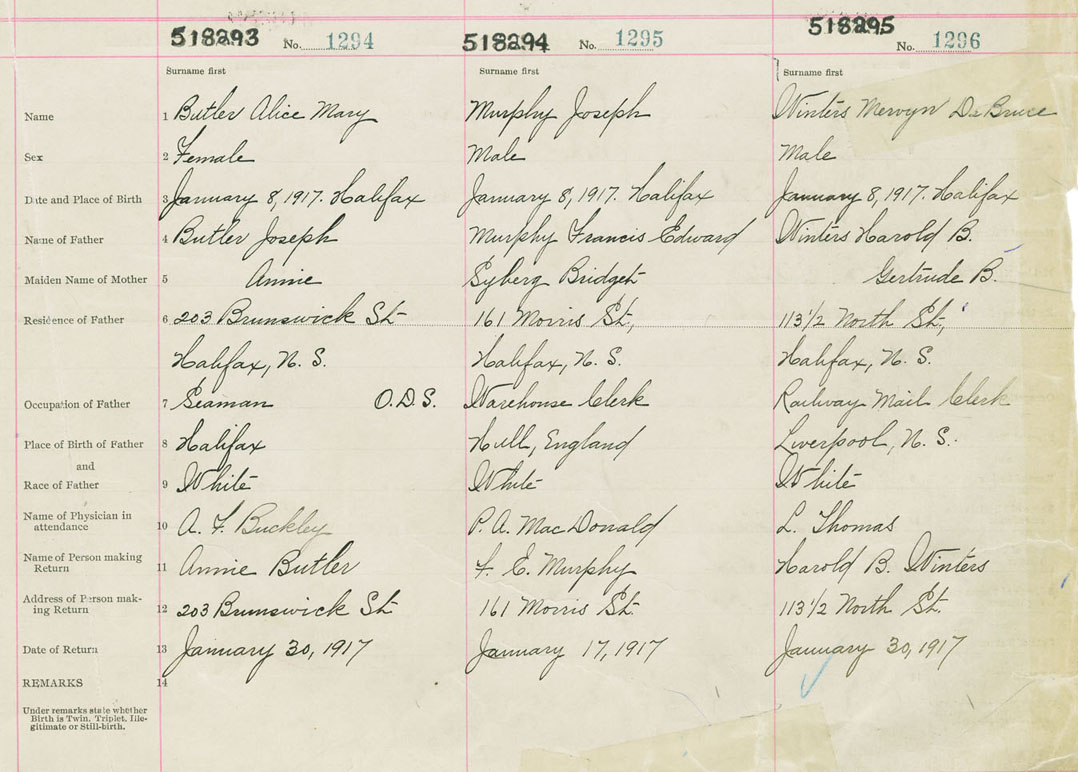 518293 No. 1294 518294 No. 1295 518295 No. 1296
Surname first Surname first Surname first
Name 1 Butler Alice Mary Murphy Joseph Winters Mervyn DeBruce
Sex 2 Female Male Male
Date and Place of Birth 3 January 8, 1917. Halifax January 8, 1917. Halifax January 8, 1917. Halifax
Name of Father 4 Butler Joseph Murphy Francis Edward Winters Harold B.
Maiden Name of Mother 5 Annie Syberg Bridget Gertrude B.
Residence of Father 6 203 Brunswick St 161 Morris St, 113 1/2 North St,
Halifax, N. S. Halifax, N. S. Halifax, N. S.
Occupation of Father 7 Seaman O.D.S. Warehouse Clerk Railway Mail Clerk
Place of Birth of Father 8 Halifax Hull, England Liverpool, N. S.
and
Race of Father 9 White White White
Name of Physician in
attendance 10 A. F. Buckley P. A. MacDonald L. Thomas
Name of Person making
Return 11 Annie Butler F. E. Murphy Harold B. Winters
Address of Person mak-
ing Return 12 203 Brunswick St 161 Morris St. 113 1/2 North St.
Date of Return 13 January 30, 1917 January 17, 1917 January 30, 1917
REMARKS 14
Under remarks state whether
Birth is Twin, Triplet, Ille-
gitimate or Still-birth.